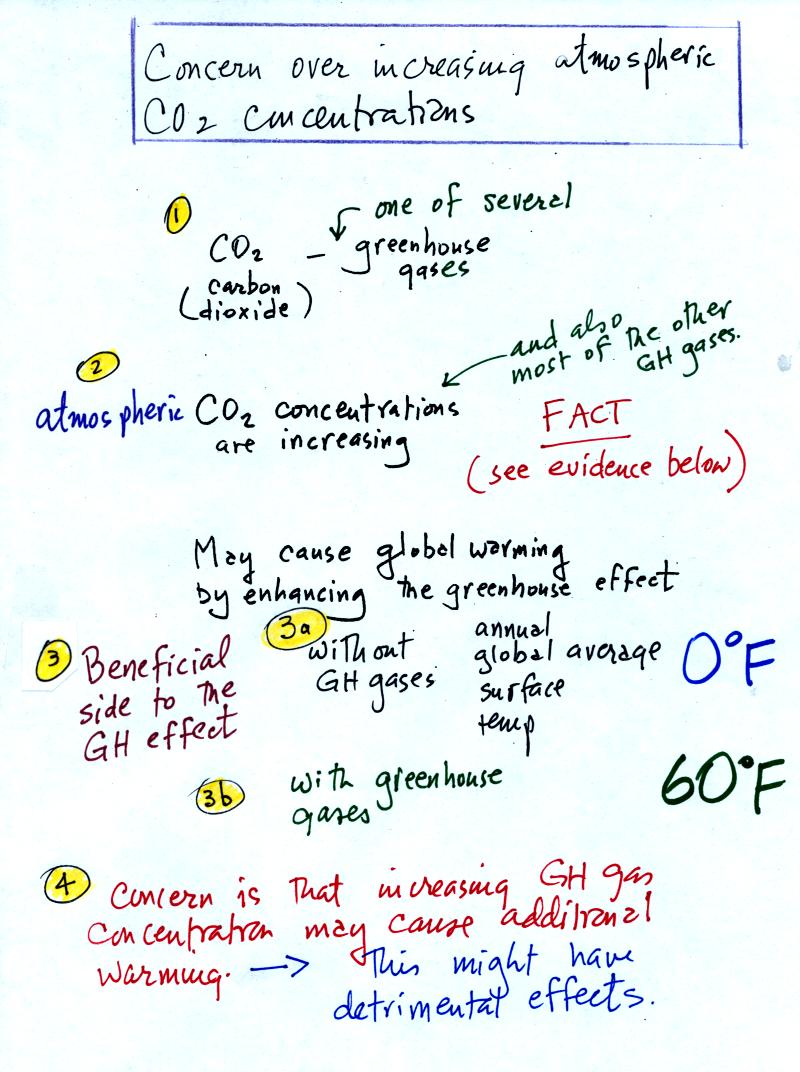 Concern over increasing atmospheric
CO2 concentrations
1
one of several
CO2 – greenhouse
gases
(carbon
dioxide)
and also
most of the other
GH gases.
2
atmospheric CO2 concentrations
are increasing
FACT
(see evidence below)
May cause global warming
by enhancing the greenhouse effect
3 Beneficial
side to the
GH effect
3a
without
GH gases
annual
global average
surface
temp
0°F
3b
with greenhouse
gases
60°F
4 Concern is that increasing GH gas
concentration may cause additional
warming. → This might have
detrimental effects.